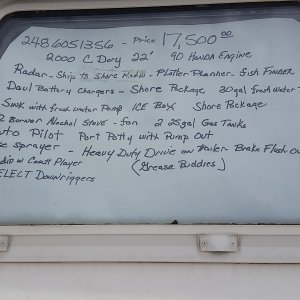 248.6051356 - Price 17,500.00
2000 C. Dory 22' 90 HONDA Engine
Radar - Ship to Shore Radio - Plotter Planner - Fish FINDER
Daul Battery Chargers - Shore Package 30 gal fresh water
Sink with fresh water Pump ICE Box Shore Package
2 Burner Alcohol Stove - fan 2 25gal Gas Tanks
Auto Pilot Port Potty with Pump Out
sprayer - Heavy Duty Drive on Trailer Brake Flush Out
Radio w Casett Player (Grease Buddies)
ELECT Downriggers